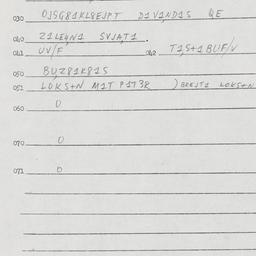 030 OJSG81KL8EJPT D1V1ND1S QE
040 21LEHN1 SVJAT1.
041 UV/F 042 T1S+1BUF/V
050 BUZ81K815
051 LOKS+N M1T P1T3R ) BREJT1 LOKS+N
060 0
070 0
071 0